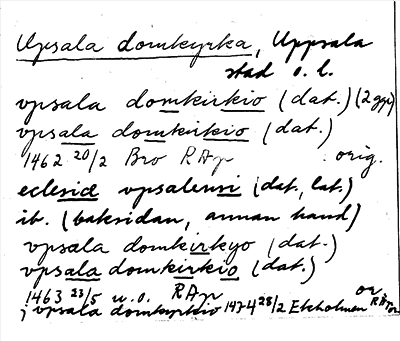 Upsala domkyrka, Uppsala
stad o. l.
vpsala domkirkio (dat.) (2 ggr)
vpsala domkirkio (dat.)
1462 20/2 Bro RAp orig.
eclesie vpsalensi (dat., lat.)
ib. (baksidan, annan hand)
vpsala domkirkyo (dat.)
vpsala domkirkio (dat.)
1463 23/5 u.o. RAp or.
j vpsala domkyrkio 1474 28/2 Ekholmen